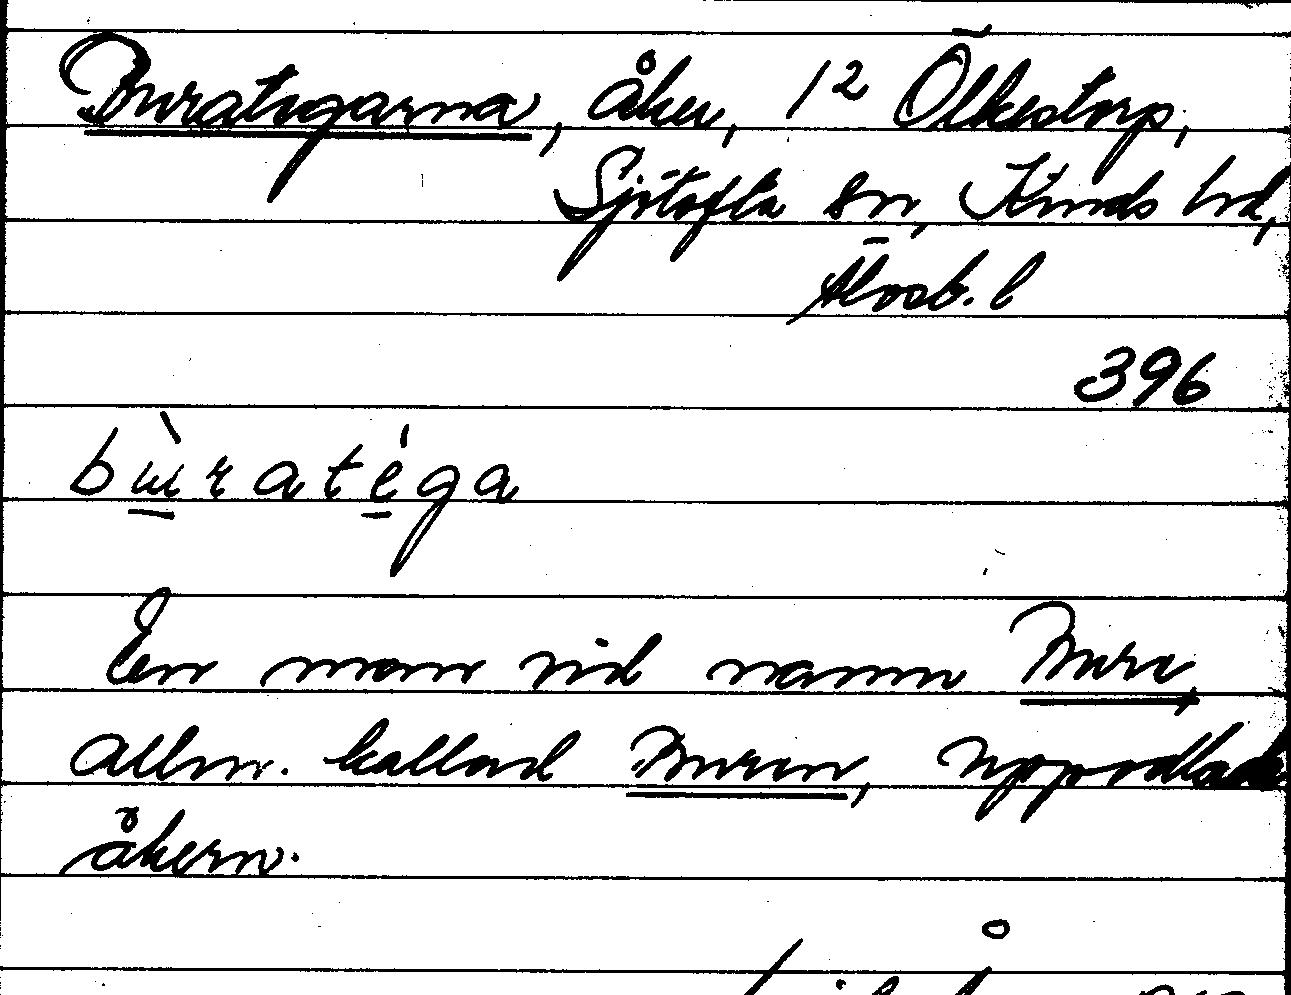 Burategarna, åker, 1² Ölkestorp,
Sjötofta sn, Kinds hd,
Älvsb. l
396
bùratéga
En man vid namn Bure,
allm. kallad Buren, uppodlade
åkern.